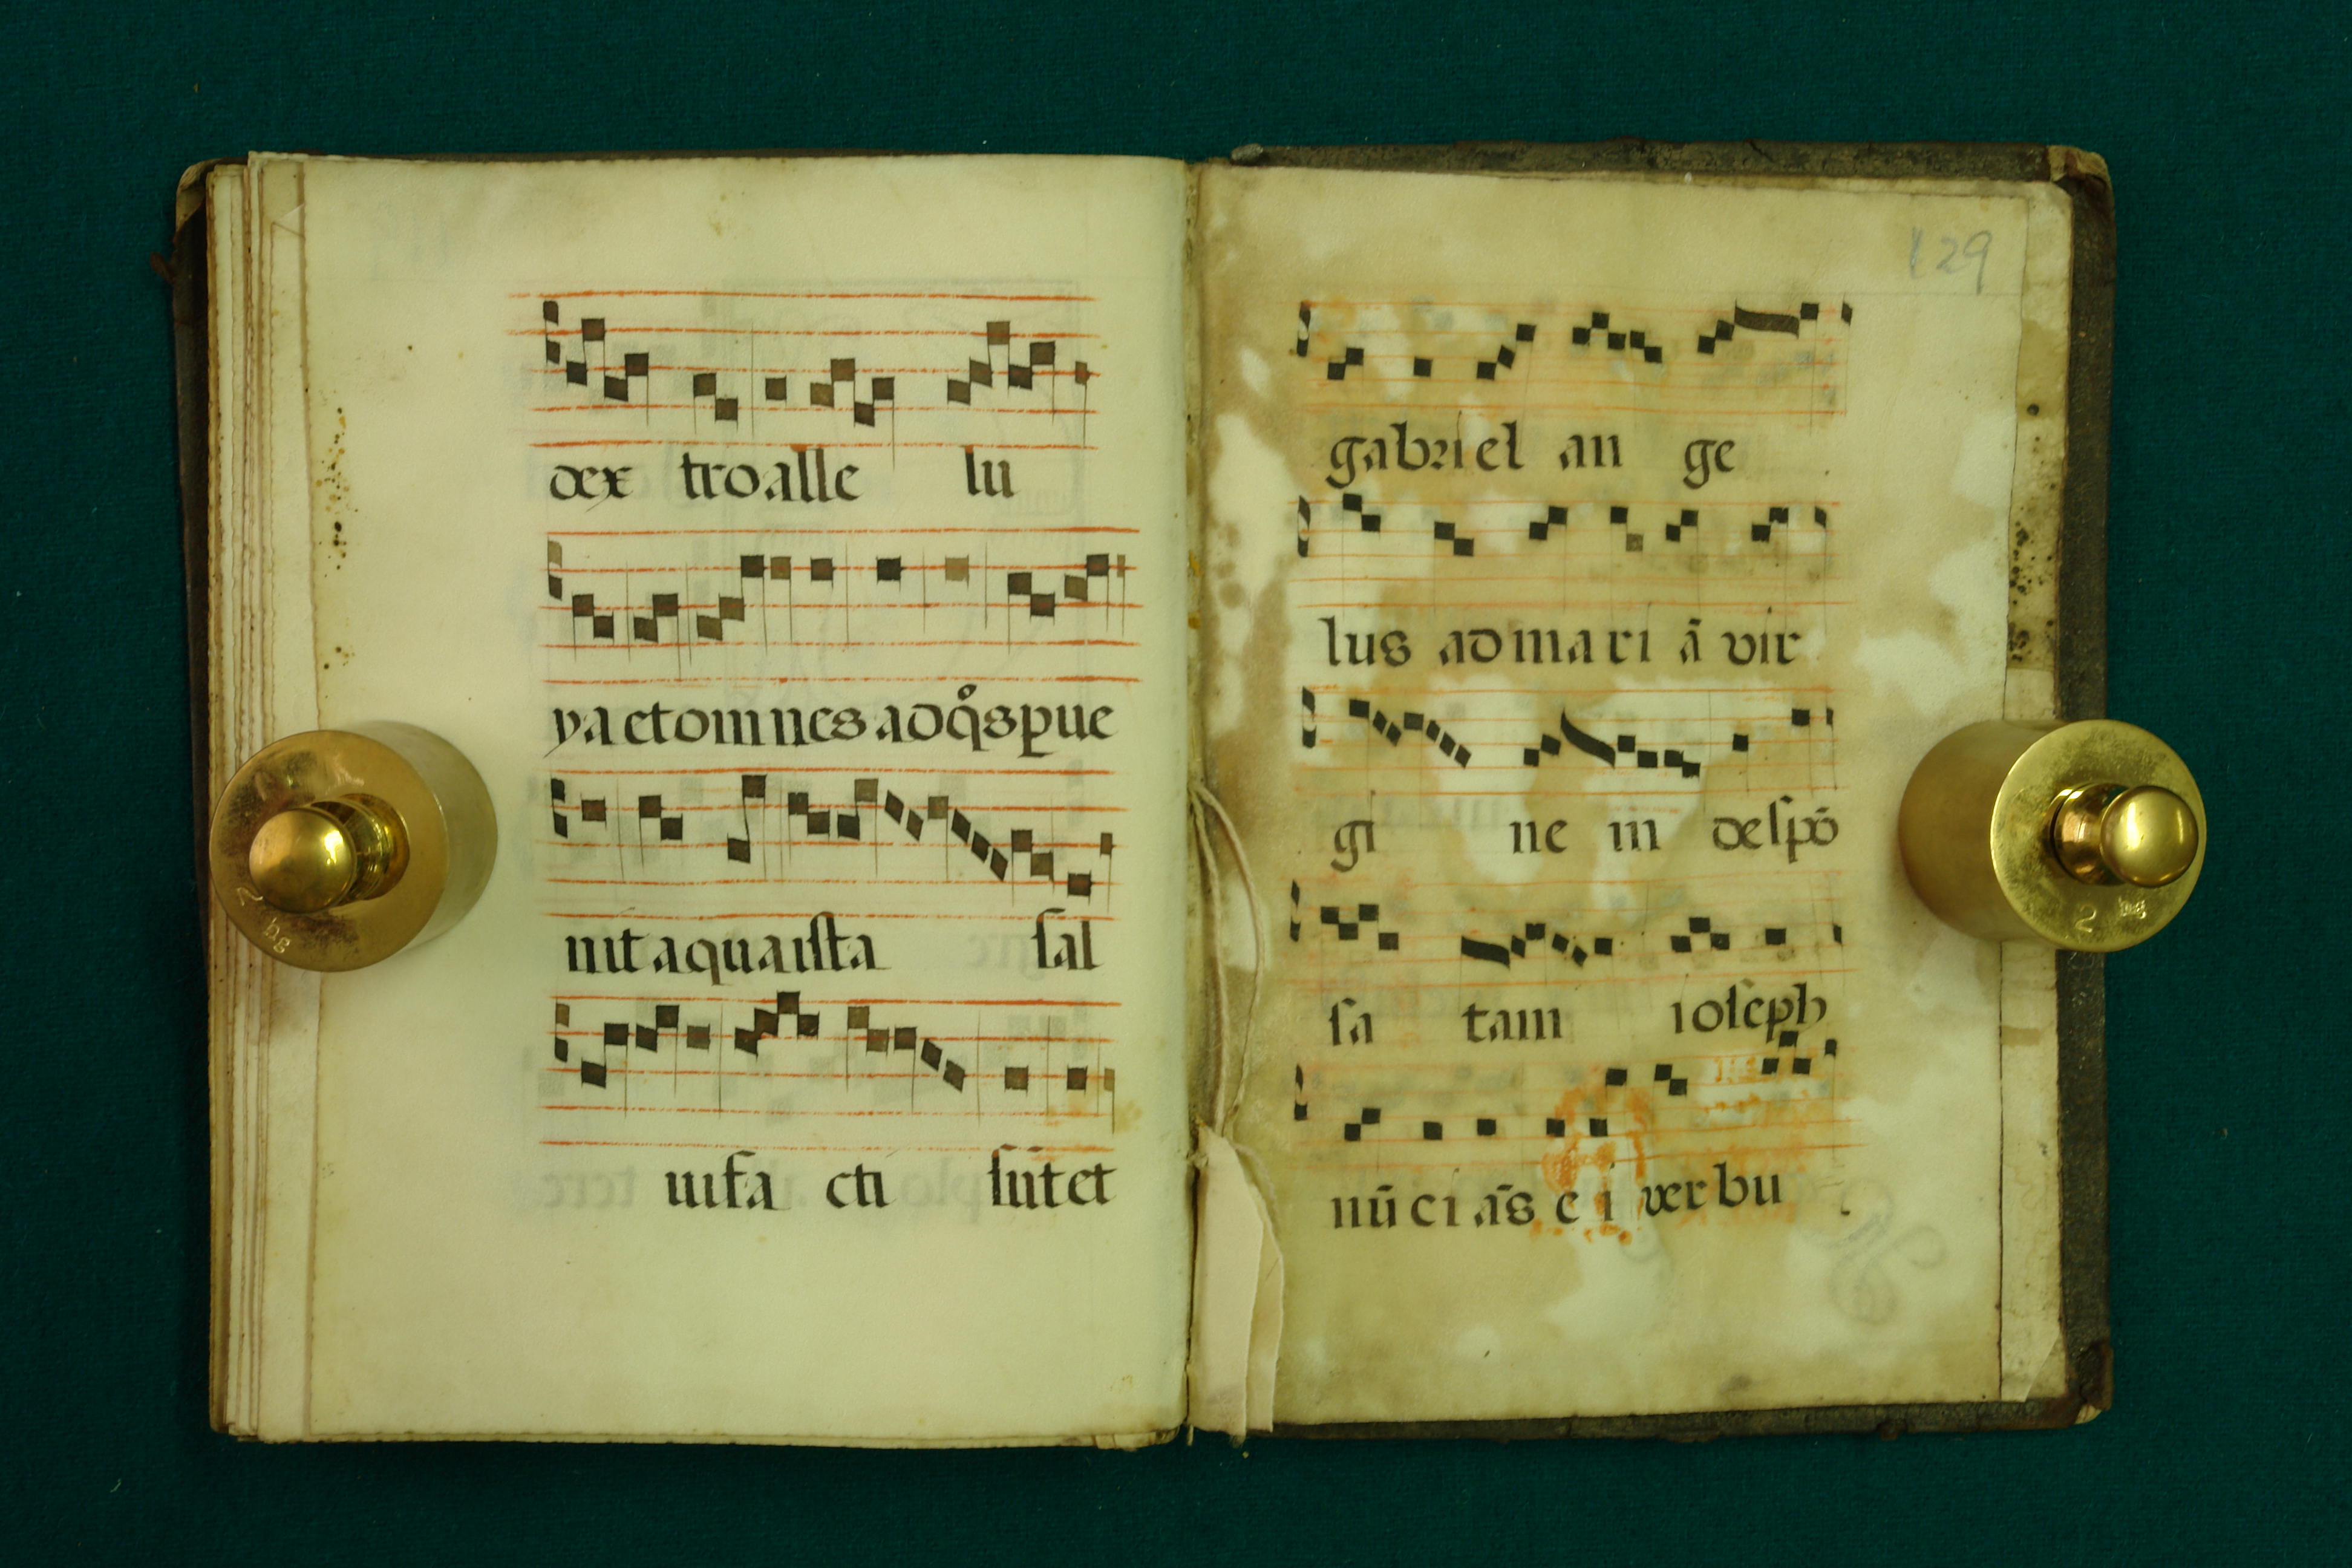 dex tro alle lu
ya et omnes ad q̊s p̱ue
nit aqua ista sal
ui fa cti sūt et
129
gabriel an ge
lus ad mari ā vir
gi ne m despō
sa tam ioseph
nū ci ās e i verbu
2 kg
2 kg